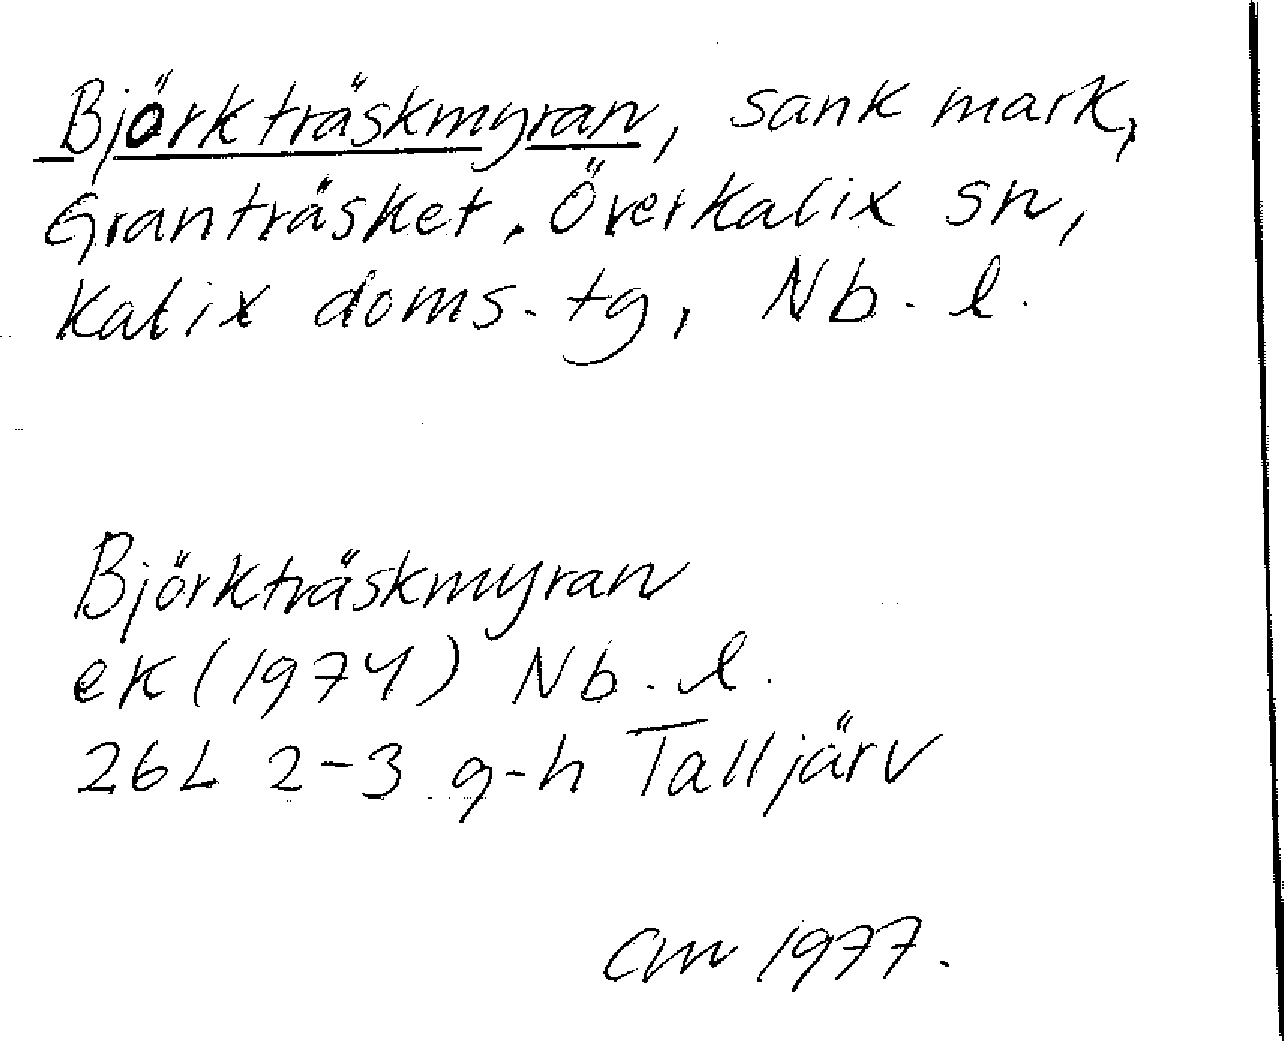 Björkträskmyran, sank mark,
Granträsket, Överkalix sn,
Kalix doms.tg, Nb. l.
Björkträskmyran
ek (1974) Nb. l.
26L 2-3 g-h Talljärv
CM 1977.